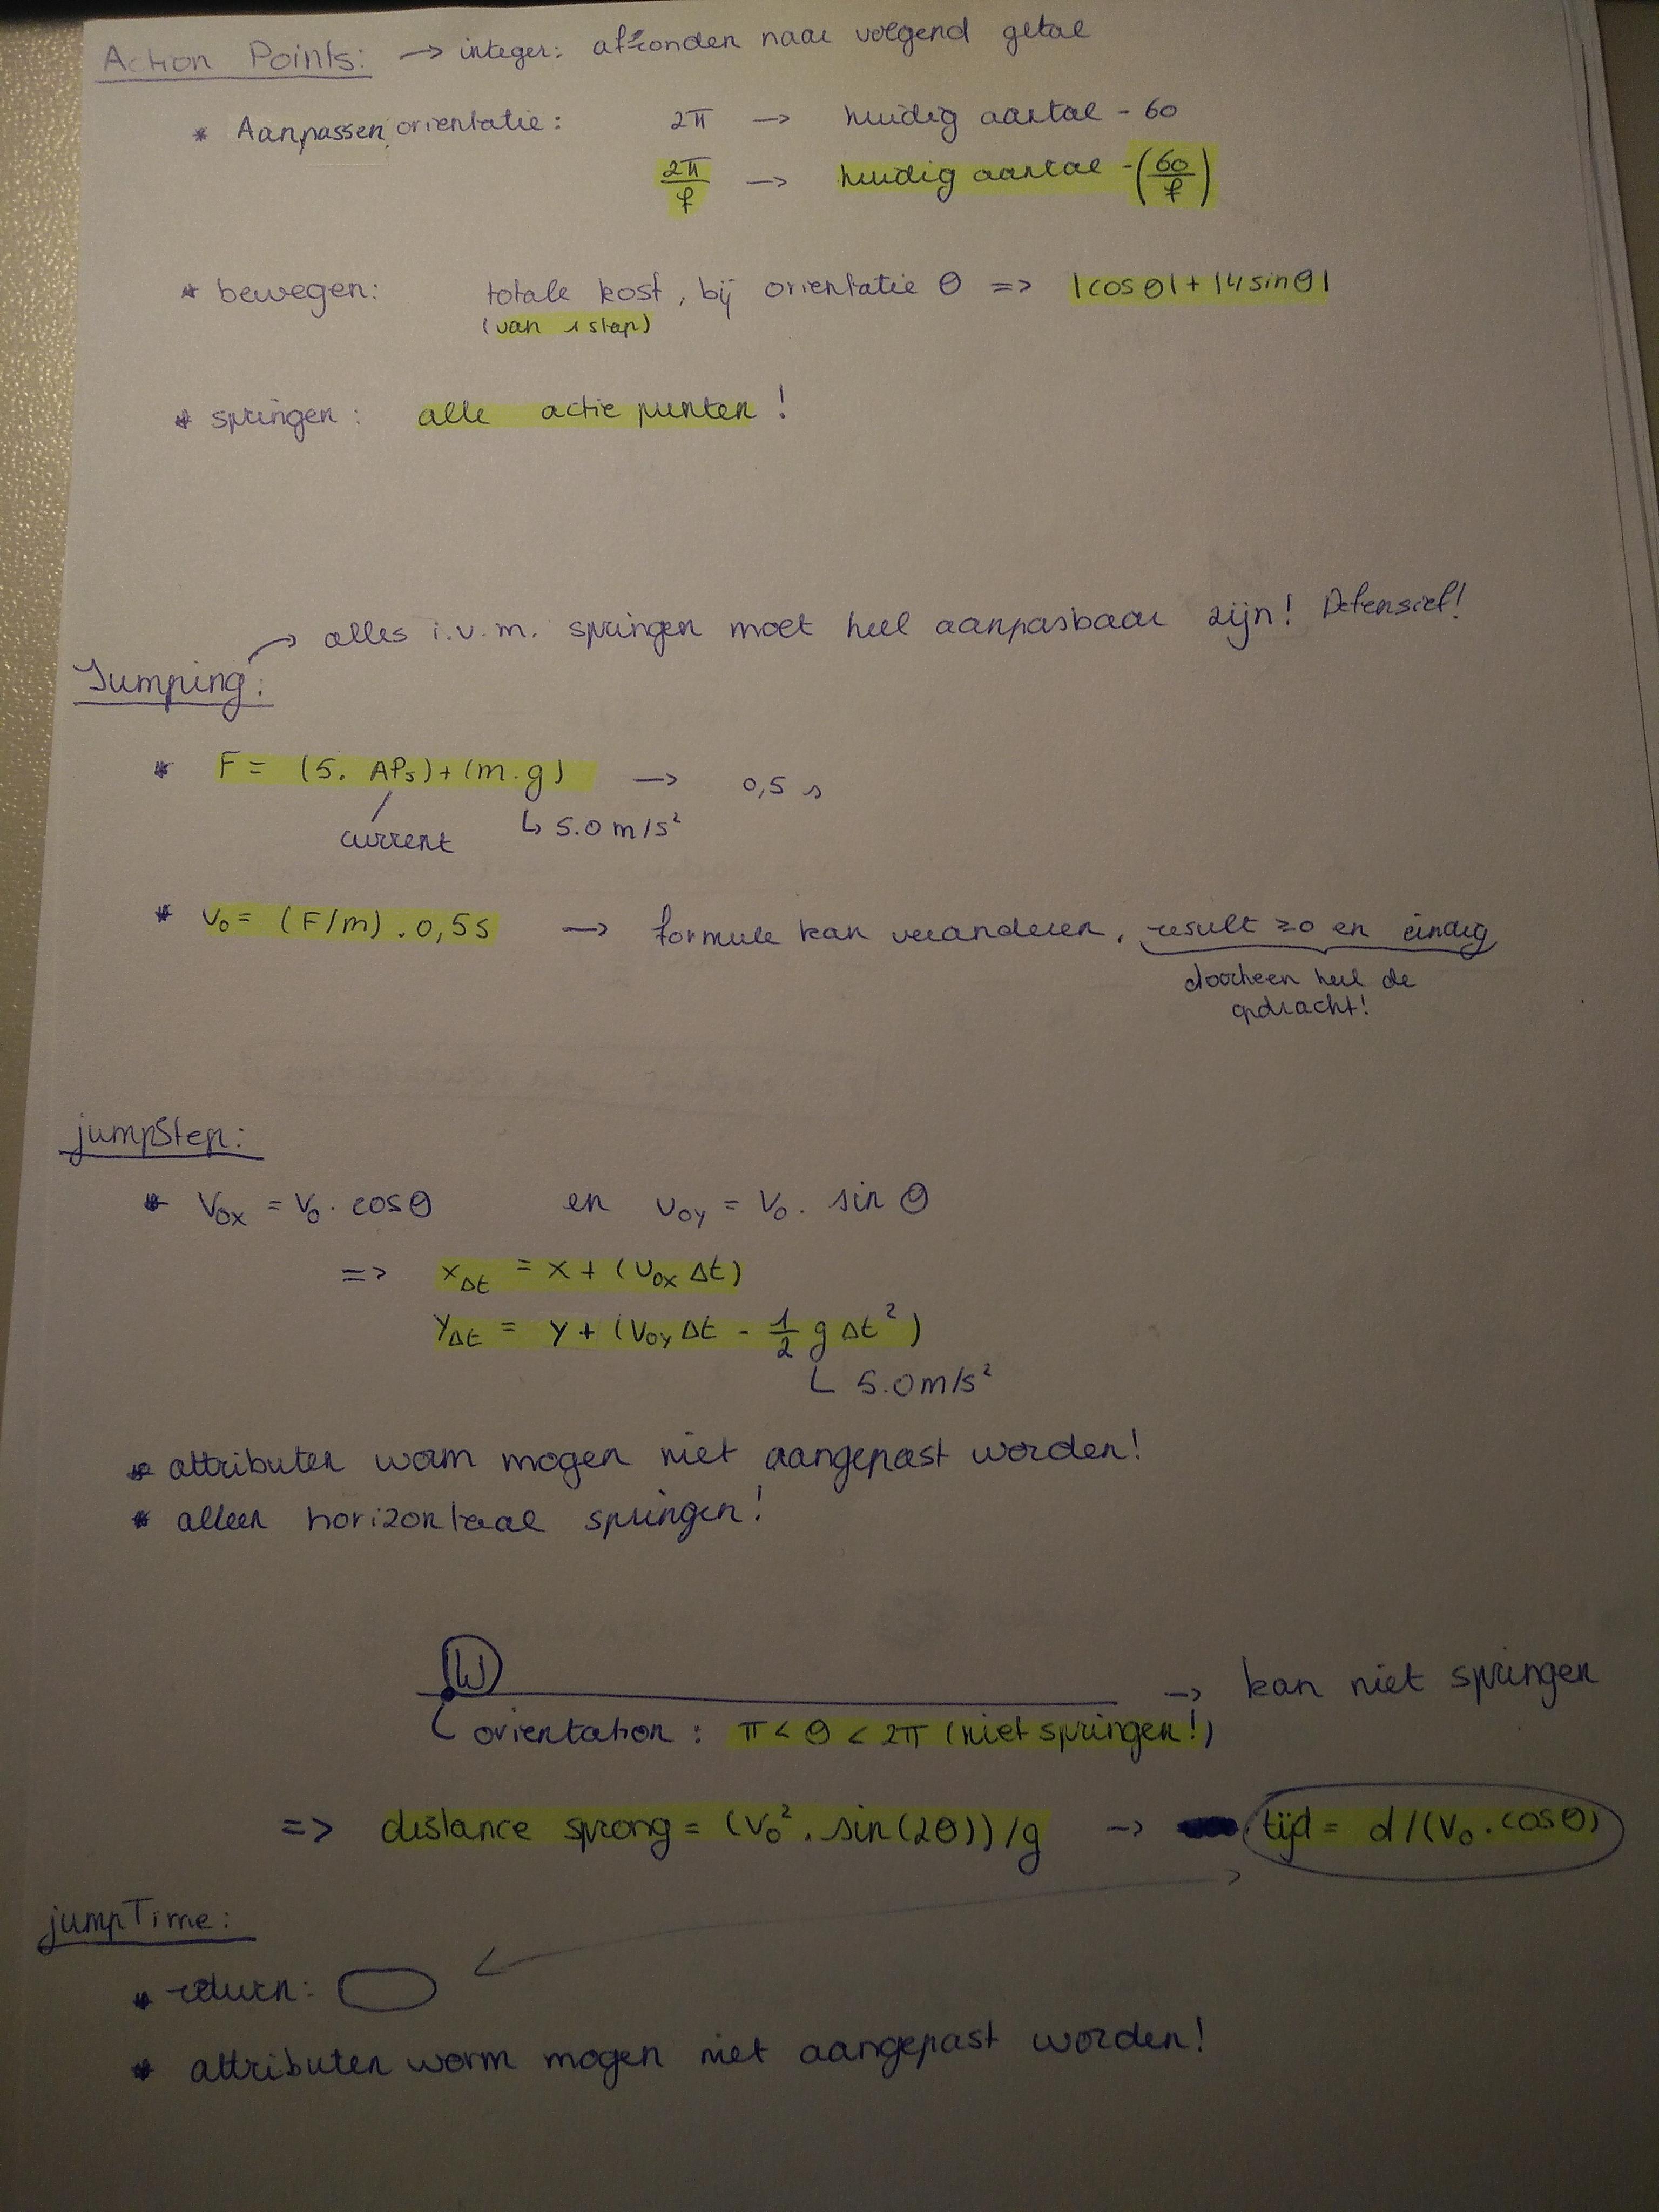 Action Points: → integer: afronden naar volgend getal
* Aanpassen orientatie: 2π → huidig aantal - 60
2π/f → huidig aantal - (60/f)
* bewegen: totale kost, bij orientatie θ => |cosθ| + |4sinθ|
(van 1 stap)
* springen: alle actie punten!
→ alles i.v.m. springen moet heel aanpasbaar zijn! Defensief!
Jumping:
* F = (5. APs) + (m.g) → 0,5 s
current ↳ 5.0 m/s²
* v₀ = (F/m) . 0,5s → formule kan veranderen, result ≥0 en eindig
doorheen heel de
opdracht!
jumpStep:
* V₀x = V₀. cosθ en v₀y = V₀. sin θ
=> x△t = x + (v₀x △t)
y△t = y + (v₀y △t - 1/2 g △t²)
↳ 5.0m/s²
* attributen worm mogen niet aangepast worden!
* alleen horizontaal springen!
W → kan niet springen
orientation: π < θ < 2π (niet springen!)
=> distance sprong = (v₀². sin(2θ))/g → tijd = d/(v₀.cosθ)
jumpTime:
* return:
* attributen worm mogen niet aangepast worden!